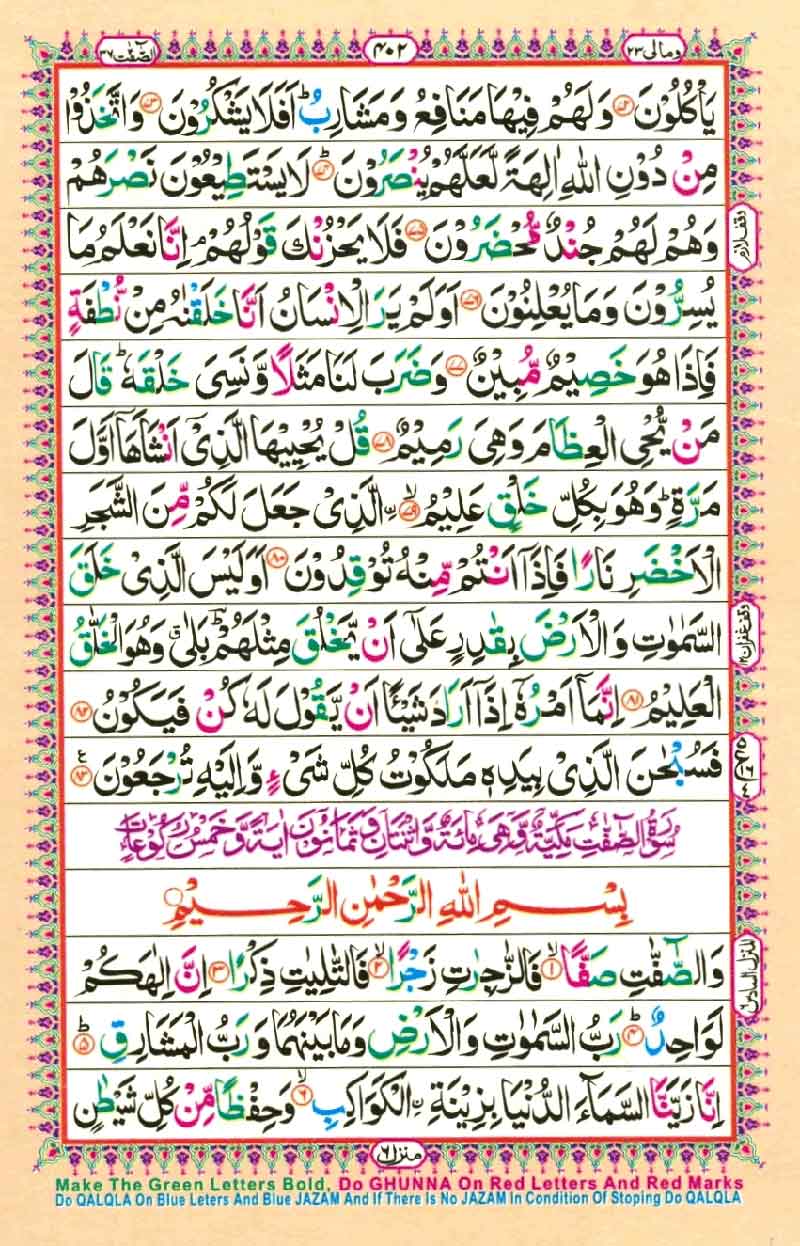 وما لی ۲۳
۴۰۲
الصّٰٓفّٰت ۳۷
یَاْكُلُوْنَ ﴿۷۲﴾ وَلَهُمْ فِیْهَا مَنَافِعُ وَمَشَارِبُ ؕ اَفَلَا یَشْكُرُوْنَ ﴿۷۳﴾ وَاتَّخَذُوْا
مِنْ دُوْنِ اللّٰهِ اٰلِهَةً لَّعَلَّهُمْ یُنْصَرُوْنَ ﴿۷۴﴾ لَا یَسْتَطِیْعُوْنَ نَصْرَهُمْ
وَهُمْ لَهُمْ جُنْدٌ مُّحْضَرُوْنَ ﴿۷۵﴾ فَلَا یَحْزُنْكَ قَوْلُهُمْ ۘ اِنَّا نَعْلَمُ مَا
وقف لازم
یُسِرُّوْنَ وَمَا یُعْلِنُوْنَ ﴿۷۶﴾ اَوَلَمْ یَرَ الْاِنْسَانُ اَنَّا خَلَقْنٰهُ مِنْ نُّطْفَةٍ
فَاِذَا هُوَ خَصِیْمٌ مُّبِیْنٌ ﴿۷۷﴾ وَضَرَبَ لَنَا مَثَلًا وَّنَسِیَ خَلْقَهٗ ؕ قَالَ
مَنْ یُّحْیِ الْعِظَامَ وَهِیَ رَمِیْمٌ ﴿۷۸﴾ قُلْ یُحْیِیْهَا الَّذِیْۤ اَنْشَاَهَاۤ اَوَّلَ
مَرَّةٍ ؕ وَهُوَ بِكُلِّ خَلْقٍ عَلِیْمُ ۣ ﴿۷۹﴾ۙ الَّذِیْ جَعَلَ لَكُمْ مِّنَ الشَّجَرِ
الْاَخْضَرِ نَارًا فَاِذَاۤ اَنْتُمْ مِّنْهُ تُوْقِدُوْنَ ﴿۸۰﴾ اَوَلَیْسَ الَّذِیْ خَلَقَ
السَّمٰوٰتِ وَالْاَرْضَ بِقٰدِرٍ عَلٰۤی اَنْ یَّخْلُقَ مِثْلَهُمْ ؕ بَلٰی ۗ وَهُوَ الْخَلّٰقُ
وقف غفران
الْعَلِیْمُ ﴿۸۱﴾ اِنَّمَاۤ اَمْرُهٗۤ اِذَاۤ اَرَادَ شَیْـًٔا اَنْ یَّقُوْلَ لَهٗ كُنْ فَیَكُوْنُ ﴿۸۲﴾
فَسُبْحٰنَ الَّذِیْ بِیَدِهٖ مَلَكُوْتُ كُلِّ شَیْءٍ وَّاِلَیْهِ تُرْجَعُوْنَ ﴿۸۳﴾ ع
سُوْرَةُ الصّٰٓفّٰتِ مَكِّیَّةٌ وَّهِیَ مِائَةٌ وَّاثْنَتَانِ وَثَمَانُوْنَ اٰیَةً وَّخَمْسُ رُكُوْعَاتٍ
بِسْمِ اللّٰهِ الرَّحْمٰنِ الرَّحِیْمِ
وَالصّٰٓفّٰتِ صَفًّا ﴿۱﴾ۙ فَالزّٰجِرٰتِ زَجْرًا ﴿۲﴾ۙ فَالتّٰلِیٰتِ ذِكْرًا ﴿۳﴾ۙ اِنَّ اِلٰهَكُمْ
المنزل السادس ۶
لَوَاحِدٌ ﴿۴﴾ؕ رَبُّ السَّمٰوٰتِ وَالْاَرْضِ وَمَا بَیْنَهُمَا وَرَبُّ الْمَشَارِقِ ﴿۵﴾ؕ
اِنَّا زَیَّنَّا السَّمَآءَ الدُّنْیَا بِزِیْنَةِ ۣ الْكَوَاكِبِ ﴿۶﴾ۙ وَحِفْظًا مِّنْ كُلِّ شَیْطٰنٍ
منزل ۶
Make The Green Letters Bold, Do GHUNNA On Red Letters And Red Marks
Do QALQLA On Blue Leters And Blue JAZAM And If There Is No JAZAM In Condition Of Stoping Do QALQLA